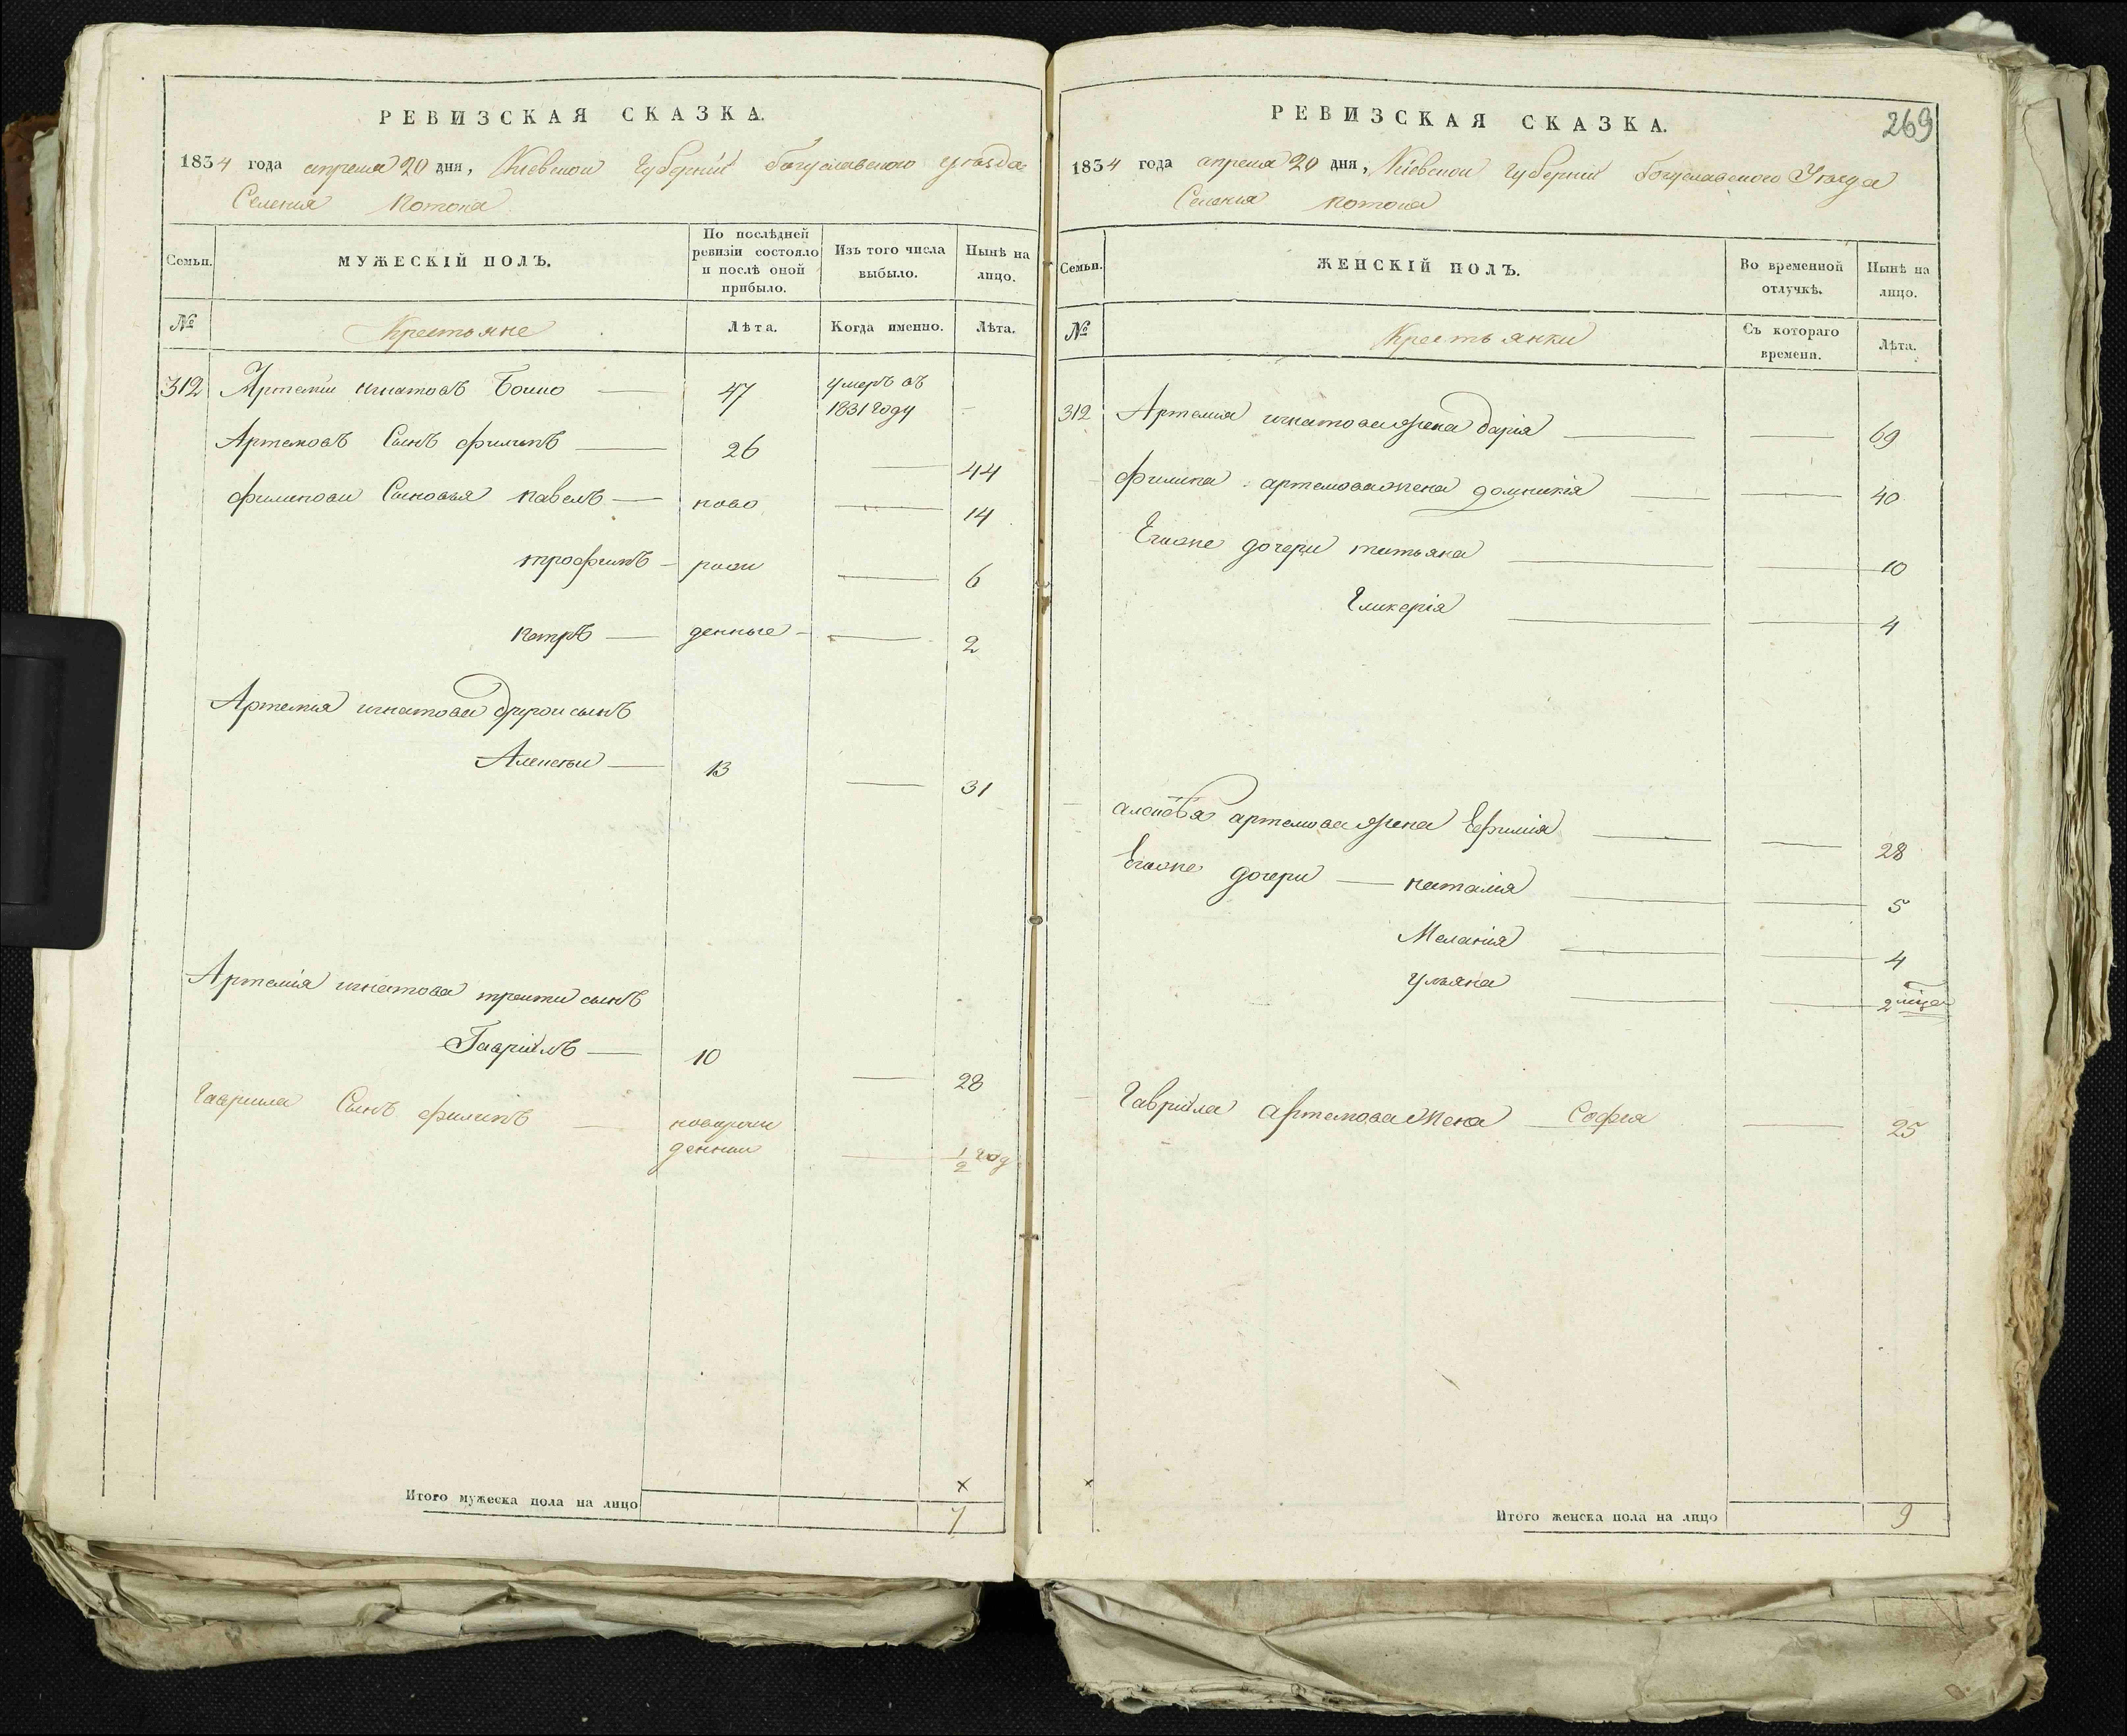 РЕВИЗСКАЯ СКАЗКА.
1834 года апреля 20 дня, Кіевской Губерніи Богуславского уезда
Селенія Потока
Семьи. МУЖЕСКІЙ ПОЛЪ. По послѣдней ревизіи состояло и послѣ оной прибыло. Изъ того числа выбыло. Нынѣ на лицо.
№ Крестьяне Лѣта. Когда именно. Лѣта.
312 Артемій игнатовъ 47 умеръ въ 1831 году
Артемовъ Сынъ филипъ 26 44
филипови Сыновья павелъ ново 14
трофимъ рож 6
петръ денные 2
Артемія игнатова другои сынъ
Алексѣи 13 31
Артемія игнатова третии сынъ
Гавріилъ 10 28
Гаврила Сынъ филипъ новорож
денныи 1/2 год
Итого мужеска пола на лицо 7
269
РЕВИЗСКАЯ СКАЗКА.
1834 года апреля 20 дня, Кіевской Губерніи Богуславского Уезда
Селенія Потока
Семьи. ЖЕНСКІЙ ПОЛЪ. Во временной отлучкѣ. Нынѣ на лицо.
№ Крестьянки Съ котораго времени. Лѣта.
312 Артемия игнатова жена дарія 69
филипа артемова жена домникія 40
Егоже дочери татьяна 10
Гликерія 4
алексѣя артемова жена Ефимія 28
Егоже дочери наталия 5
Меланія 4
ульяна 2
Гавріила артемова жена Софія 25
Итого женска пола на лицо 9